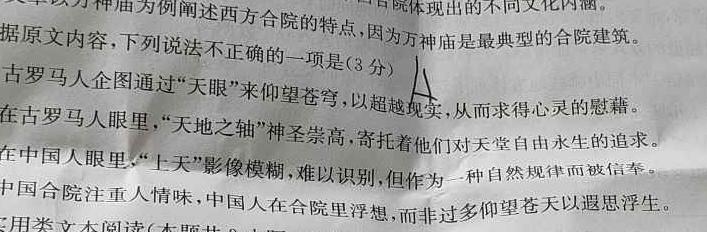 院体现出的不同文化内涵。
神庙为例阐述西方合院的特点,因为万神庙是最典型的合院建筑。
据原文内容,下列说法不正确的一项是(3分) A
古罗马人企图通过“天眼”来仰望苍穹,以超越现实,从而求得心灵的慰藉。
在古罗马人眼里,“天地之轴”神圣崇高,寄托着他们对天堂自由永生的追求。
在中国人眼里,“上天”影像模糊,难以识别,但作为一种自然规律而被信奉。
中国合院注重人情味,中国人在合院里浮想,而非过多仰望苍天以遐思浮生。
用类文本阅读(本题共